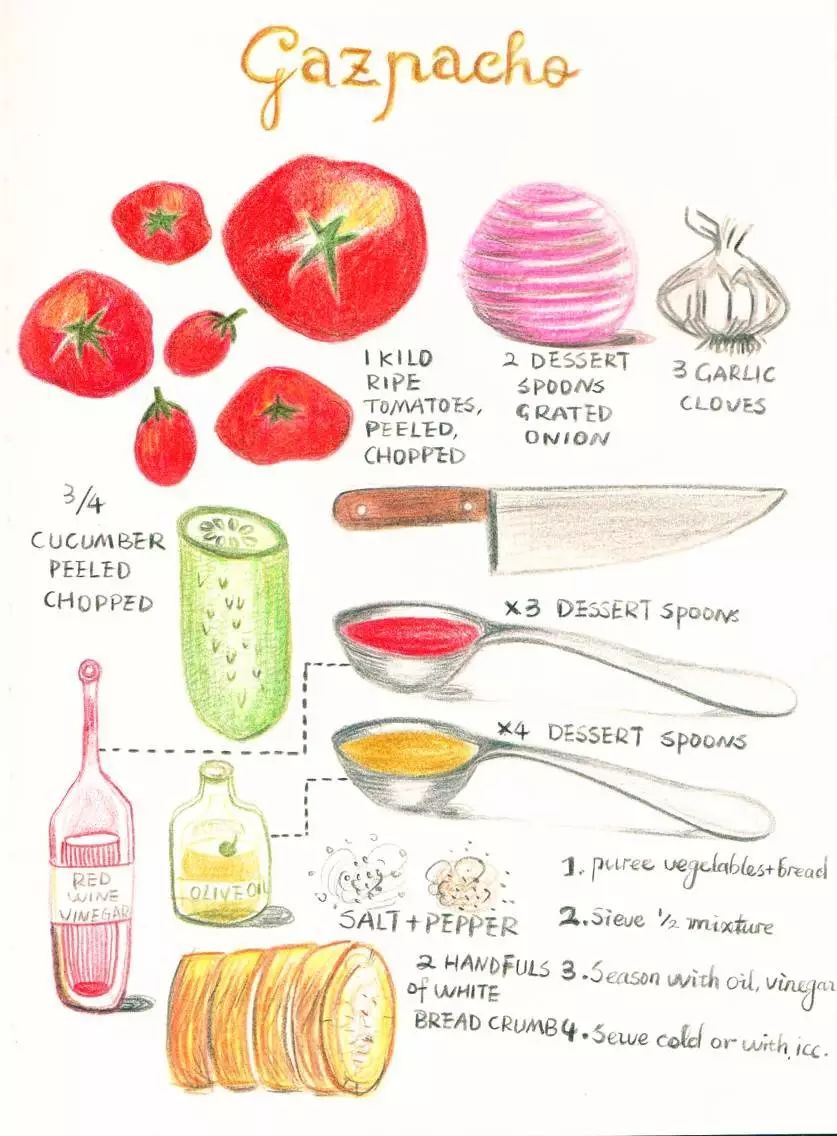 Gazpacho
1 KILO
RIPE
TOMATOES,
PEELED,
CHOPPED
2 DESSERT
SPOONS
GRATED
ONION
3 GARLIC
CLOVES
3/4
CUCUMBER
PEELED
CHOPPED
x3 DESSERT SPOONS
x4 DESSERT SPOONS
RED
WINE
VINEGAR
OLIVE OIL
SALT + PEPPER
2 HANDFULS
of WHITE
BREAD CRUMB
1. puree vegetables + bread
2. Sieve 1/2 mixture
3. Season with oil, vinegar
4. Serve cold or with ice.